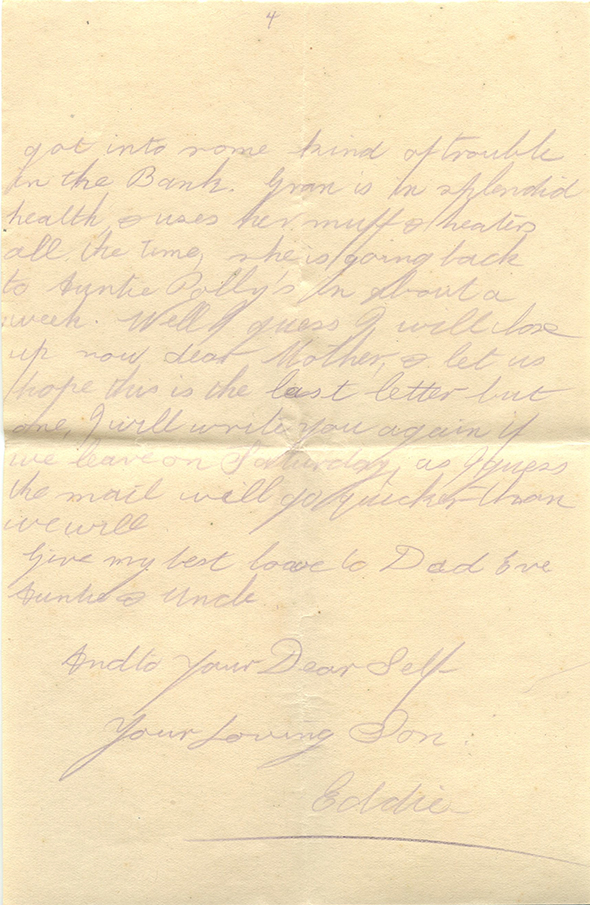 4
got into some kind of trouble
in the Bank. Gran is in splendid
health & uses her muff & heaters
all the time, she is going back
to Auntie Polly's in about a
week. Well I guess I will close
up now dear Mother, & let us
hope this is the last letter but
one, I will write you again if
we leave on Saturday, as I guess
the mail will go quicker than
we will.
Give my best love to Dad Eve
Auntie & Uncle
And to Your Dear Self
Your Loving Son.
Eddie